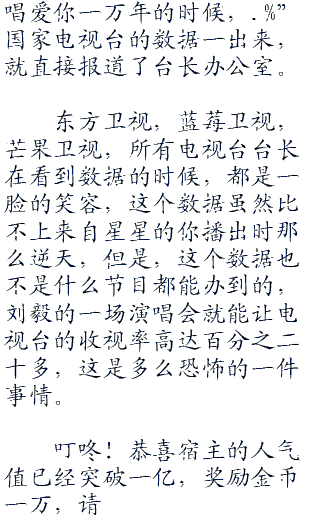 唱爱你一万年的时候，.%”
国家电视台的数据一出来，
就直接报道了台长办公室。
东方卫视，蓝莓卫视，
芒果卫视，所有电视台台长
在看到数据的时候，都是一
脸的笑容，这个数据虽然比
不上来自星星的你播出时那
么逆天，但是，这个数据也
不是什么节目都能办到的，
刘毅的一场演唱会就能让电
视台的收视率高达百分之二
十多，这是多么恐怖的一件
事情。
叮咚！恭喜宿主的人气
值已经突破一亿，奖励金币
一万，请